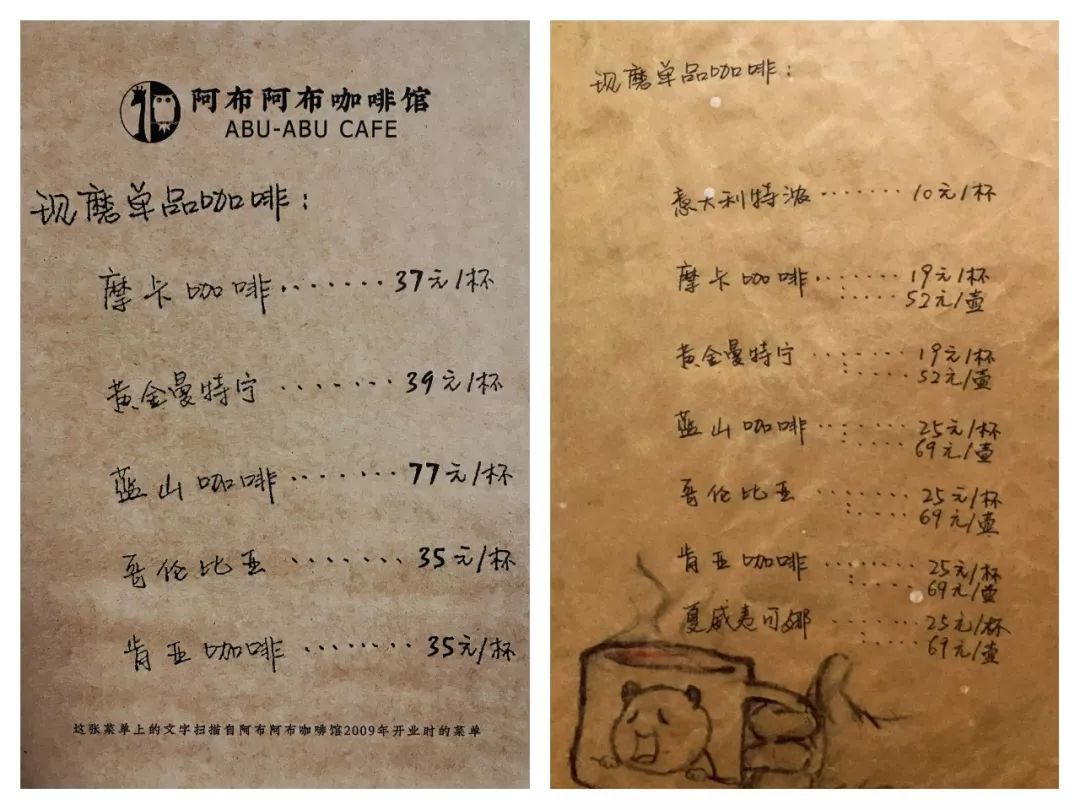 阿布阿布咖啡馆
ABU-ABU CAFE
现磨单品咖啡：
摩卡咖啡········37元/杯
黄金曼特宁········39元/杯
蓝山咖啡········77元/杯
哥伦比亚········35元/杯
肯亚咖啡········35元/杯
这张菜单上的文字扫描自阿布阿布咖啡馆2009年开业时的菜单
现磨单品咖啡：
意大利特浓········10元/杯
摩卡咖啡········19元/杯
52元/壶
黄金曼特宁········19元/杯
52元/壶
蓝山咖啡········25元/杯
69元/壶
哥伦比亚········25元/杯
69元/壶
肯亚咖啡········25元/杯
69元/壶
夏威夷可娜········25元/杯
69元/壶